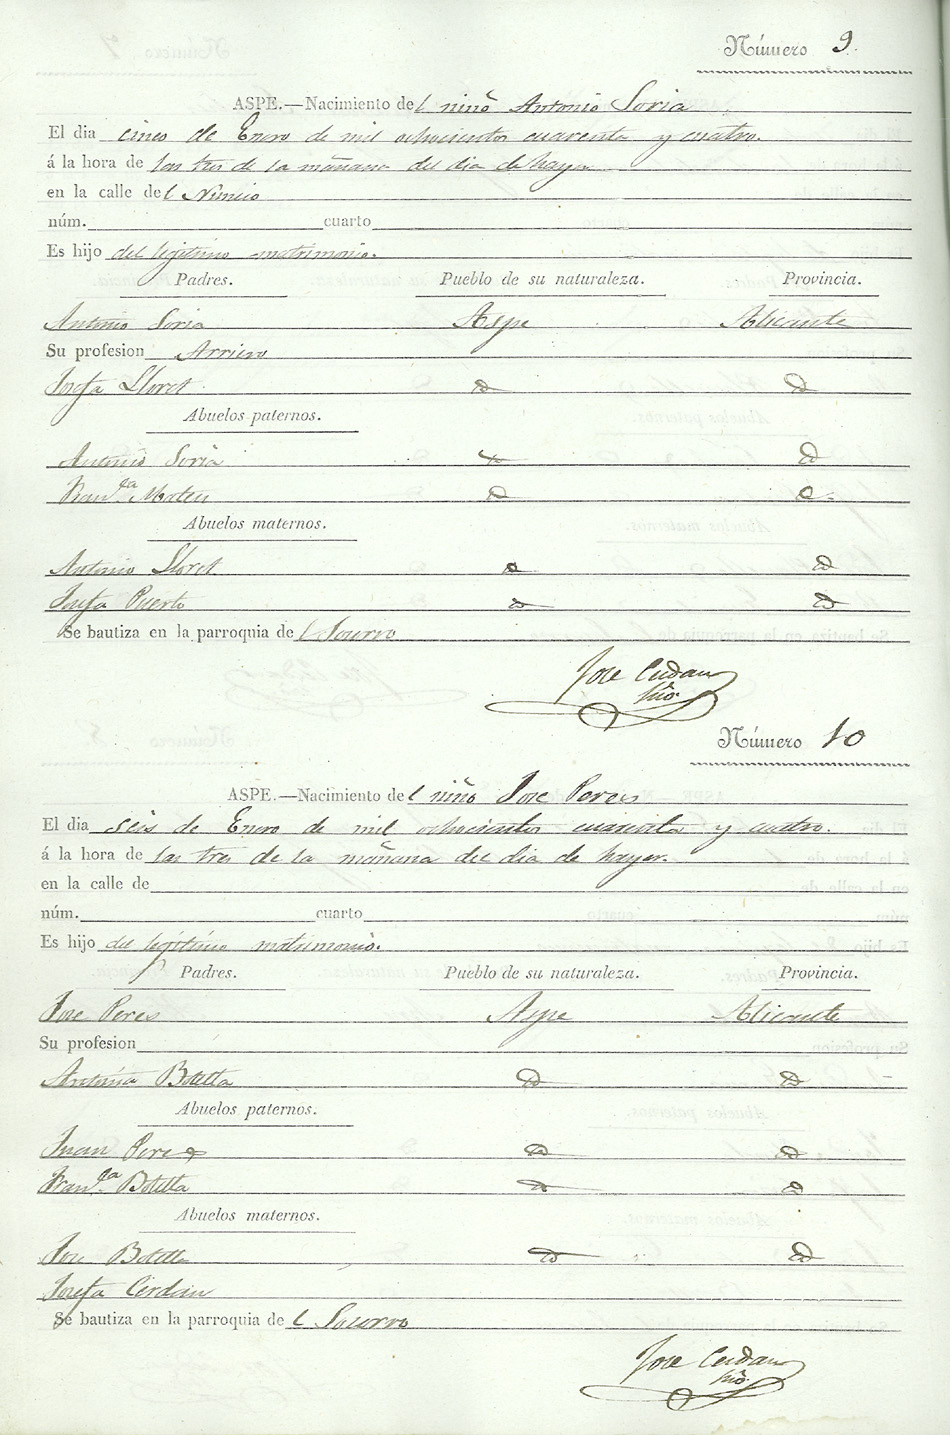 Número 9.
ASPE.—Nacimiento del niño Antonio Soria
El dia cinco de Enero de mil ochocientos cuarenta y cuatro.
á la hora de las tres de la mañana del dia de hayer
en la calle del Nuncio
núm. cuarto
Es hijo del legitimo matrimonio.
Padres. Pueblo de su naturaleza. Provincia.
Antonio Soria Aspe Alicante
Su profesion Arriero
Josefa Lloret id id
Abuelos paternos.
Antonio Soria id id
Fran.ca Mateu id id
Abuelos maternos.
Antonio Lloret id id
Josefa Puerto id id
Se bautiza en la parroquia del Socorro
Jose Cerdan
Número 10
ASPE.—Nacimiento del niño Jose Peres
El dia seis de Enero de mil ochocientos cuarenta y cuatro.
á la hora de las tres de la mañana del dia de hayer.
en la calle de
núm. cuarto
Es hijo del legitimo matrimonio.
Padres. Pueblo de su naturaleza. Provincia.
Jose Peres Aspe Alicante
Su profesion
Antonia Botella id id
Abuelos paternos.
Juan Peres id id
Fran.ca Botella id id
Abuelos maternos.
Jose Botella id id
Josefa Cerdan
Se bautiza en la parroquia del Socorro
Jose Cerdan